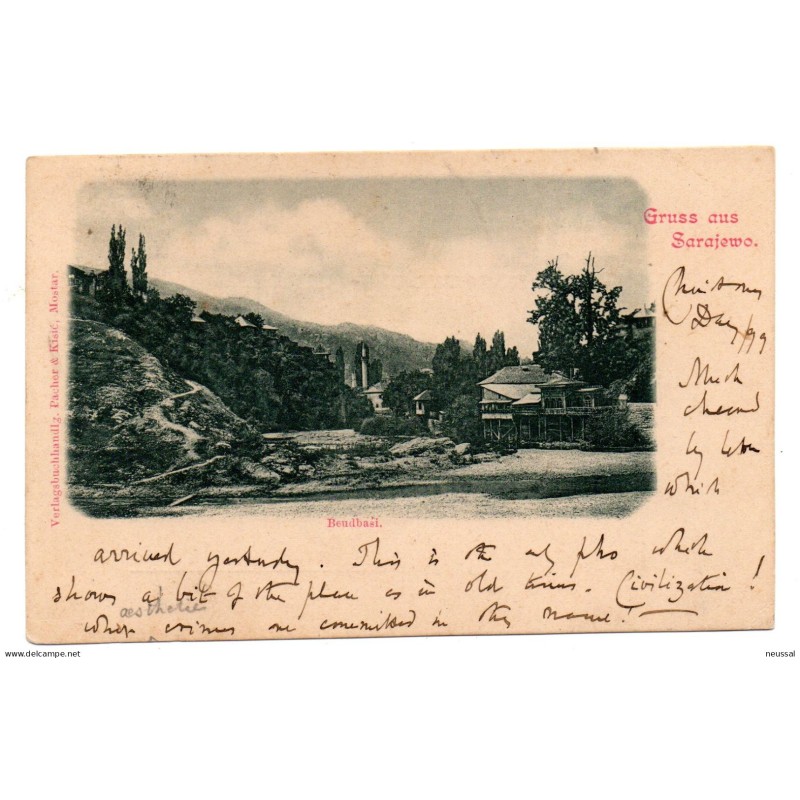 Gruss aus
Sarajewo.
Verlagsbuchhandlg. Pacher & Kisić, Mostar.
Day/99
Much
cheered
by letter
which
Bendbaši.
arrived yesterday. This is the only pho which
shows a bit of the place as in old times. Civilization!
aesthetic
what crimes are committed in thy name!
www.delcampe.net
neussal